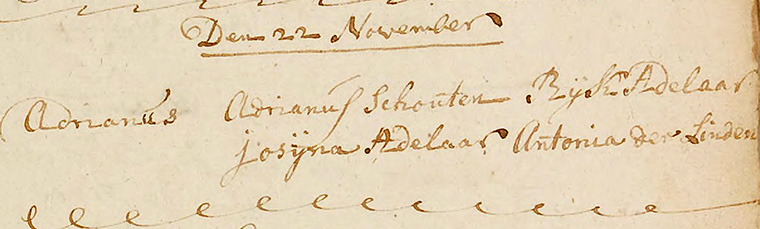 Den 22 November
Adrianus Adrianus Schouten Ryk Adelaar
Josyna Adelaar Antonia der Linden